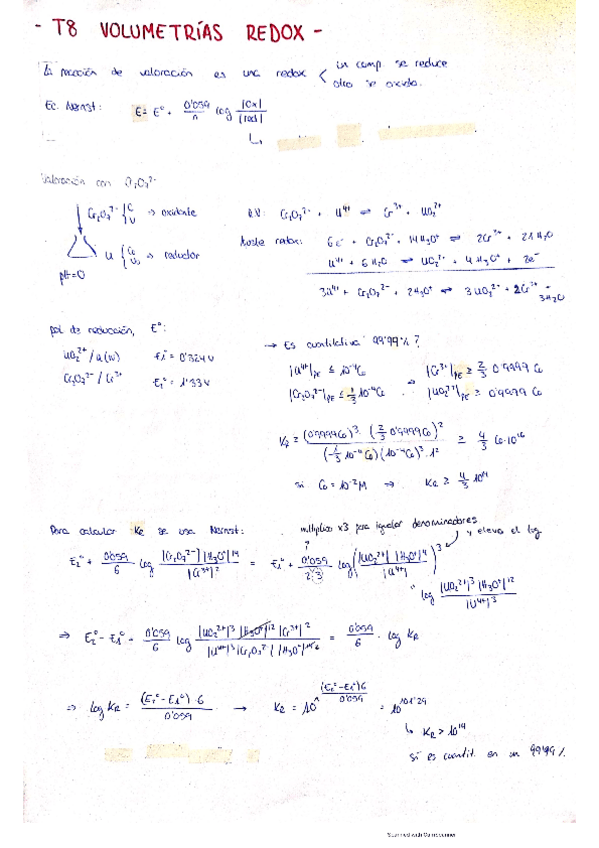 - T8 VOLUMETRÍAS REDOX -
La reacción de valoración es una redox < un comp. se reduce
otro se oxida.
Ec. Nernst: E = E° + 0'059/n log |Ox|/|red|
Valoración con Cr₂O₇²⁻
Cr₂O₇²⁻ { C V → oxidante
R.V: Cr₂O₇²⁻ + U⁴⁺ ⇌ Cr³⁺ + UO₂²⁺
U { C₀ V₀ → reductor
pH=0
Ajuste redox: 6e⁻ + Cr₂O₇²⁻ + 14H₃O⁺ ⇌ 2Cr³⁺ + 21H₂O
U⁴⁺ + 6H₂O ⇌ UO₂²⁺ + 4H₃O⁺ + 2e⁻
3U⁴⁺ + Cr₂O₇²⁻ + 2H₃O⁺ ⇌ 3UO₂²⁺ + 2Cr³⁺ + 3H₂O
pot de reducción, E°:
UO₂²⁺/U(IV) E₁° = 0'324V
Cr₂O₇²⁻/Cr³⁺ E₂° = 1'33V
→ Es cuantitativa 99'99%?
|U⁴⁺|PE ≤ 10⁻⁴C₀ → |Cr³⁺|PE ≥ 2/3 0'9999 C₀
|Cr₂O₇²⁻|PE ≤ 1/3 10⁻⁴C₀ |UO₂²⁺|PE ≥ 0'9999 C₀
KR ≥ (0'9999C₀)³ · (2/3 0'9999C₀)² / (1/3 10⁻⁴ C₀)(10⁻⁴C₀)³ · 1² ≥ 4/3 C₀·10¹⁶
si C₀ = 10⁻²M → KR ≥ 4/3 10¹⁴
Para calcular KR se usa Nernst:
multiplico x3 para igualar denominadores
y elevo el log
E₂° + 0'059/6 log |Cr₂O₇²⁻| |H₃O⁺|¹⁴/|Cr³⁺|² = E₁° + 0'059/2·3 log (|UO₂²⁺| |H₃O⁺|⁴/|U⁴⁺|)³
log |UO₂²⁺|³ |H₃O⁺|¹²/|U⁴⁺|³
⇒ E₂° - E₁° = 0'059/6 log |UO₂²⁺|³ |H₃O⁺|¹² |Cr³⁺|²/|U⁴⁺|³ |Cr₂O₇²⁻| |H₃O⁺|¹⁴ = 0'059/6 · log KR
⇒ log KR = (E₂° - E₁°)·6/0'059 → KR = 10^(E₂°-E₁°)6/0'059 = 10^101'29
↳ KR > 10¹⁴
sí es cuantit. en un 99'99%.
Scanned with CamScanner